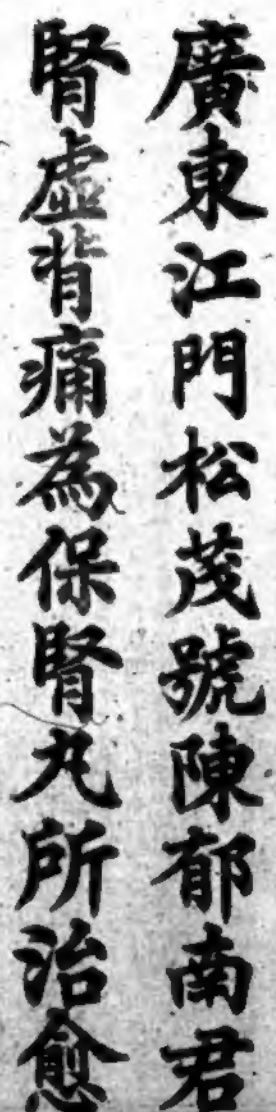 廣東江門松茂號陳郁南君
腎虛背痛為保腎丸所治愈